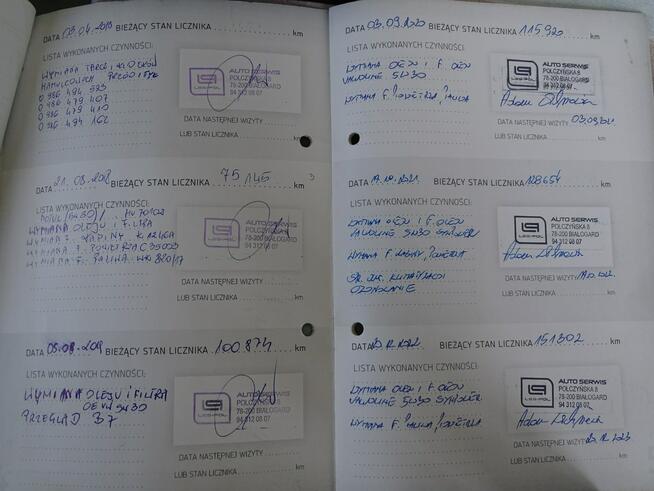 DATA 03.04.2018 BIEŻĄCY STAN LICZNIKA km
LISTA WYKONANYCH CZYNNOŚCI:
WYMIANA TARCZ, KLOCKÓW
HAMULCOWYCH PRZÓD I TYŁ
0 986 494 593
0 986 479 407
0 986 479 410
0 986 494 162
LP
LESI-POL
AUTO SERWIS
POŁCZYŃSKA 8
78-200 BIAŁOGARD
94 312 08 07
DATA NASTĘPNEJ WIZYTY
LUB STAN LICZNIKA km
DATA 21.08.2018 BIEŻĄCY STAN LICZNIKA 75 145 km
LISTA WYKONANYCH CZYNNOŚCI:
WYMIANA OLEJU I FILTRA
WYMIANA F. KABINY K1246A
WYMIANA F. POWIETRZA C35003
WYMIANA F. PALIWA WK 820/17
LP
LESI-POL
AUTO SERWIS
POŁCZYŃSKA 8
78-200 BIAŁOGARD
94 312 08 07
DATA NASTĘPNEJ WIZYTY
LUB STAN LICZNIKA km
DATA BIEŻĄCY STAN LICZNIKA 100.874 km
LISTA WYKONANYCH CZYNNOŚCI:
WYMIANA OLEJU I FILTRA
5W30
PRZEGLĄD
LP
LESI-POL
AUTO SERWIS
POŁCZYŃSKA 8
78-200 BIAŁOGARD
94 312 08 07
DATA NASTĘPNEJ WIZYTY
LUB STAN LICZNIKA km
DATA 03.09.2020 BIEŻĄCY STAN LICZNIKA 115.920 km
LISTA WYKONANYCH CZYNNOŚCI:
WYMIANA OLEJU I F. OLEJU
VALVOLINE 5W30
WYMIANA F. POWIETRZA, PALIWA
LP
LESI-POL
AUTO SERWIS
POŁCZYŃSKA 8
78-200 BIAŁOGARD
94 312 08 07
Adam
DATA NASTĘPNEJ WIZYTY 03.09.2021
LUB STAN LICZNIKA km
DATA BIEŻĄCY STAN LICZNIKA 128654 km
LISTA WYKONANYCH CZYNNOŚCI:
WYMIANA OLEJU I F. OLEJU
VALVOLINE 5W30 SYNPOWER
WYMIANA F. KABINY, POWIETRZA
KLIMATYZACJI
OZONOWANIE
LP
LESI-POL
AUTO SERWIS
POŁCZYŃSKA 8
78-200 BIAŁOGARD
94 312 08 07
Adam
DATA NASTĘPNEJ WIZYTY
LUB STAN LICZNIKA km
DATA BIEŻĄCY STAN LICZNIKA 151302 km
LISTA WYKONANYCH CZYNNOŚCI:
WYMIANA OLEJU I F. OLEJU
VALVOLINE 5W30 SYNPOWER
WYMIANA F. PALIWA, POWIETRZA
LP
LESI-POL
AUTO SERWIS
POŁCZYŃSKA 8
78-200 BIAŁOGARD
94 312 08 07
Adam
DATA NASTĘPNEJ WIZYTY
LUB STAN LICZNIKA km